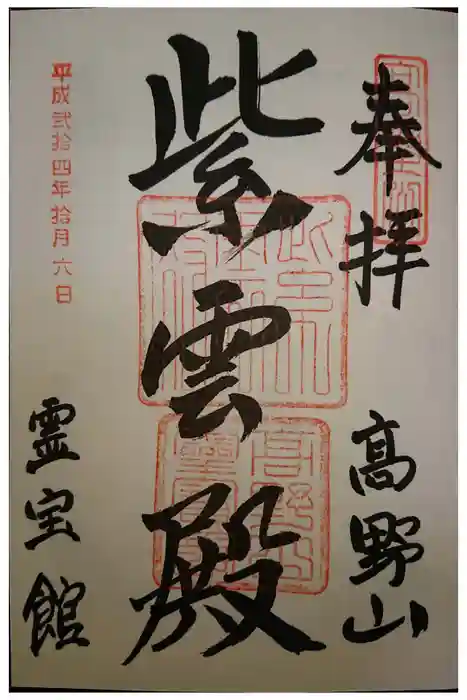 奉拝
高野山
紫雲殿
平成弐拾四年拾月六日
霊宝館